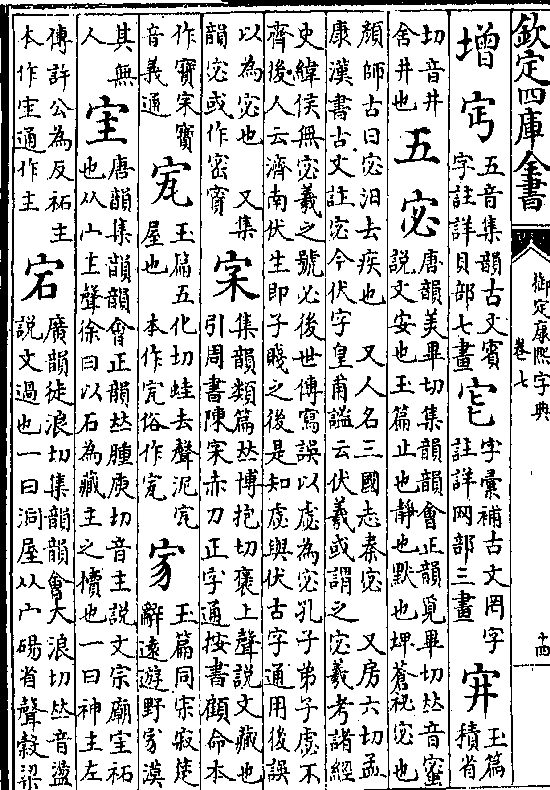 欽定四庫全書
御定康熙字典
卷七
十四
增
五音集韻古文賓
字註詳貝部七畫
字彙補古文罔字
註詳网部三畫
宑
玉篇
積省
切音井
舍井也
五
宓
唐韻美畢切集韻韻會正韻覓畢切𠀤音蜜
說文安也玉篇止也靜也默也埤蒼祕宓也
顏師古曰宓汨去疾也 又人名三國志秦宓 又房六切孟
康漢書古文註宓今伏字皇甫謐云伏羲或謂之宓羲考諸經
史緯侯無宓羲之號必後世傳寫誤以虙為宓孔子弟子虙不
齊後人云濟南伏生即子賤之後是知虙與伏古字通用後誤
以為宓也 又集
韻宓或作密
宲
集韻類篇𠀤博抱切襃上聲說文藏也
引周書陳宲赤刀正字通按書顧命本
作寶宲寶
音義通
玉篇五化切蛙去聲泥
屋也 本作 俗作
玉篇同宋寂楚
辭遠遊野 漠
其無
人
宔
唐韻集韻韻會正韻𠀤腫庾切音主說文宗廟宔祏
也从宀主聲徐曰以石為藏主之櫝也一曰神主左
傳許公為反祏主
本作宔通作主
宕
廣韻徒浪切集韻韻會大浪切𠀤音盪
說文過也一曰洞屋从宀碭省聲穀梁